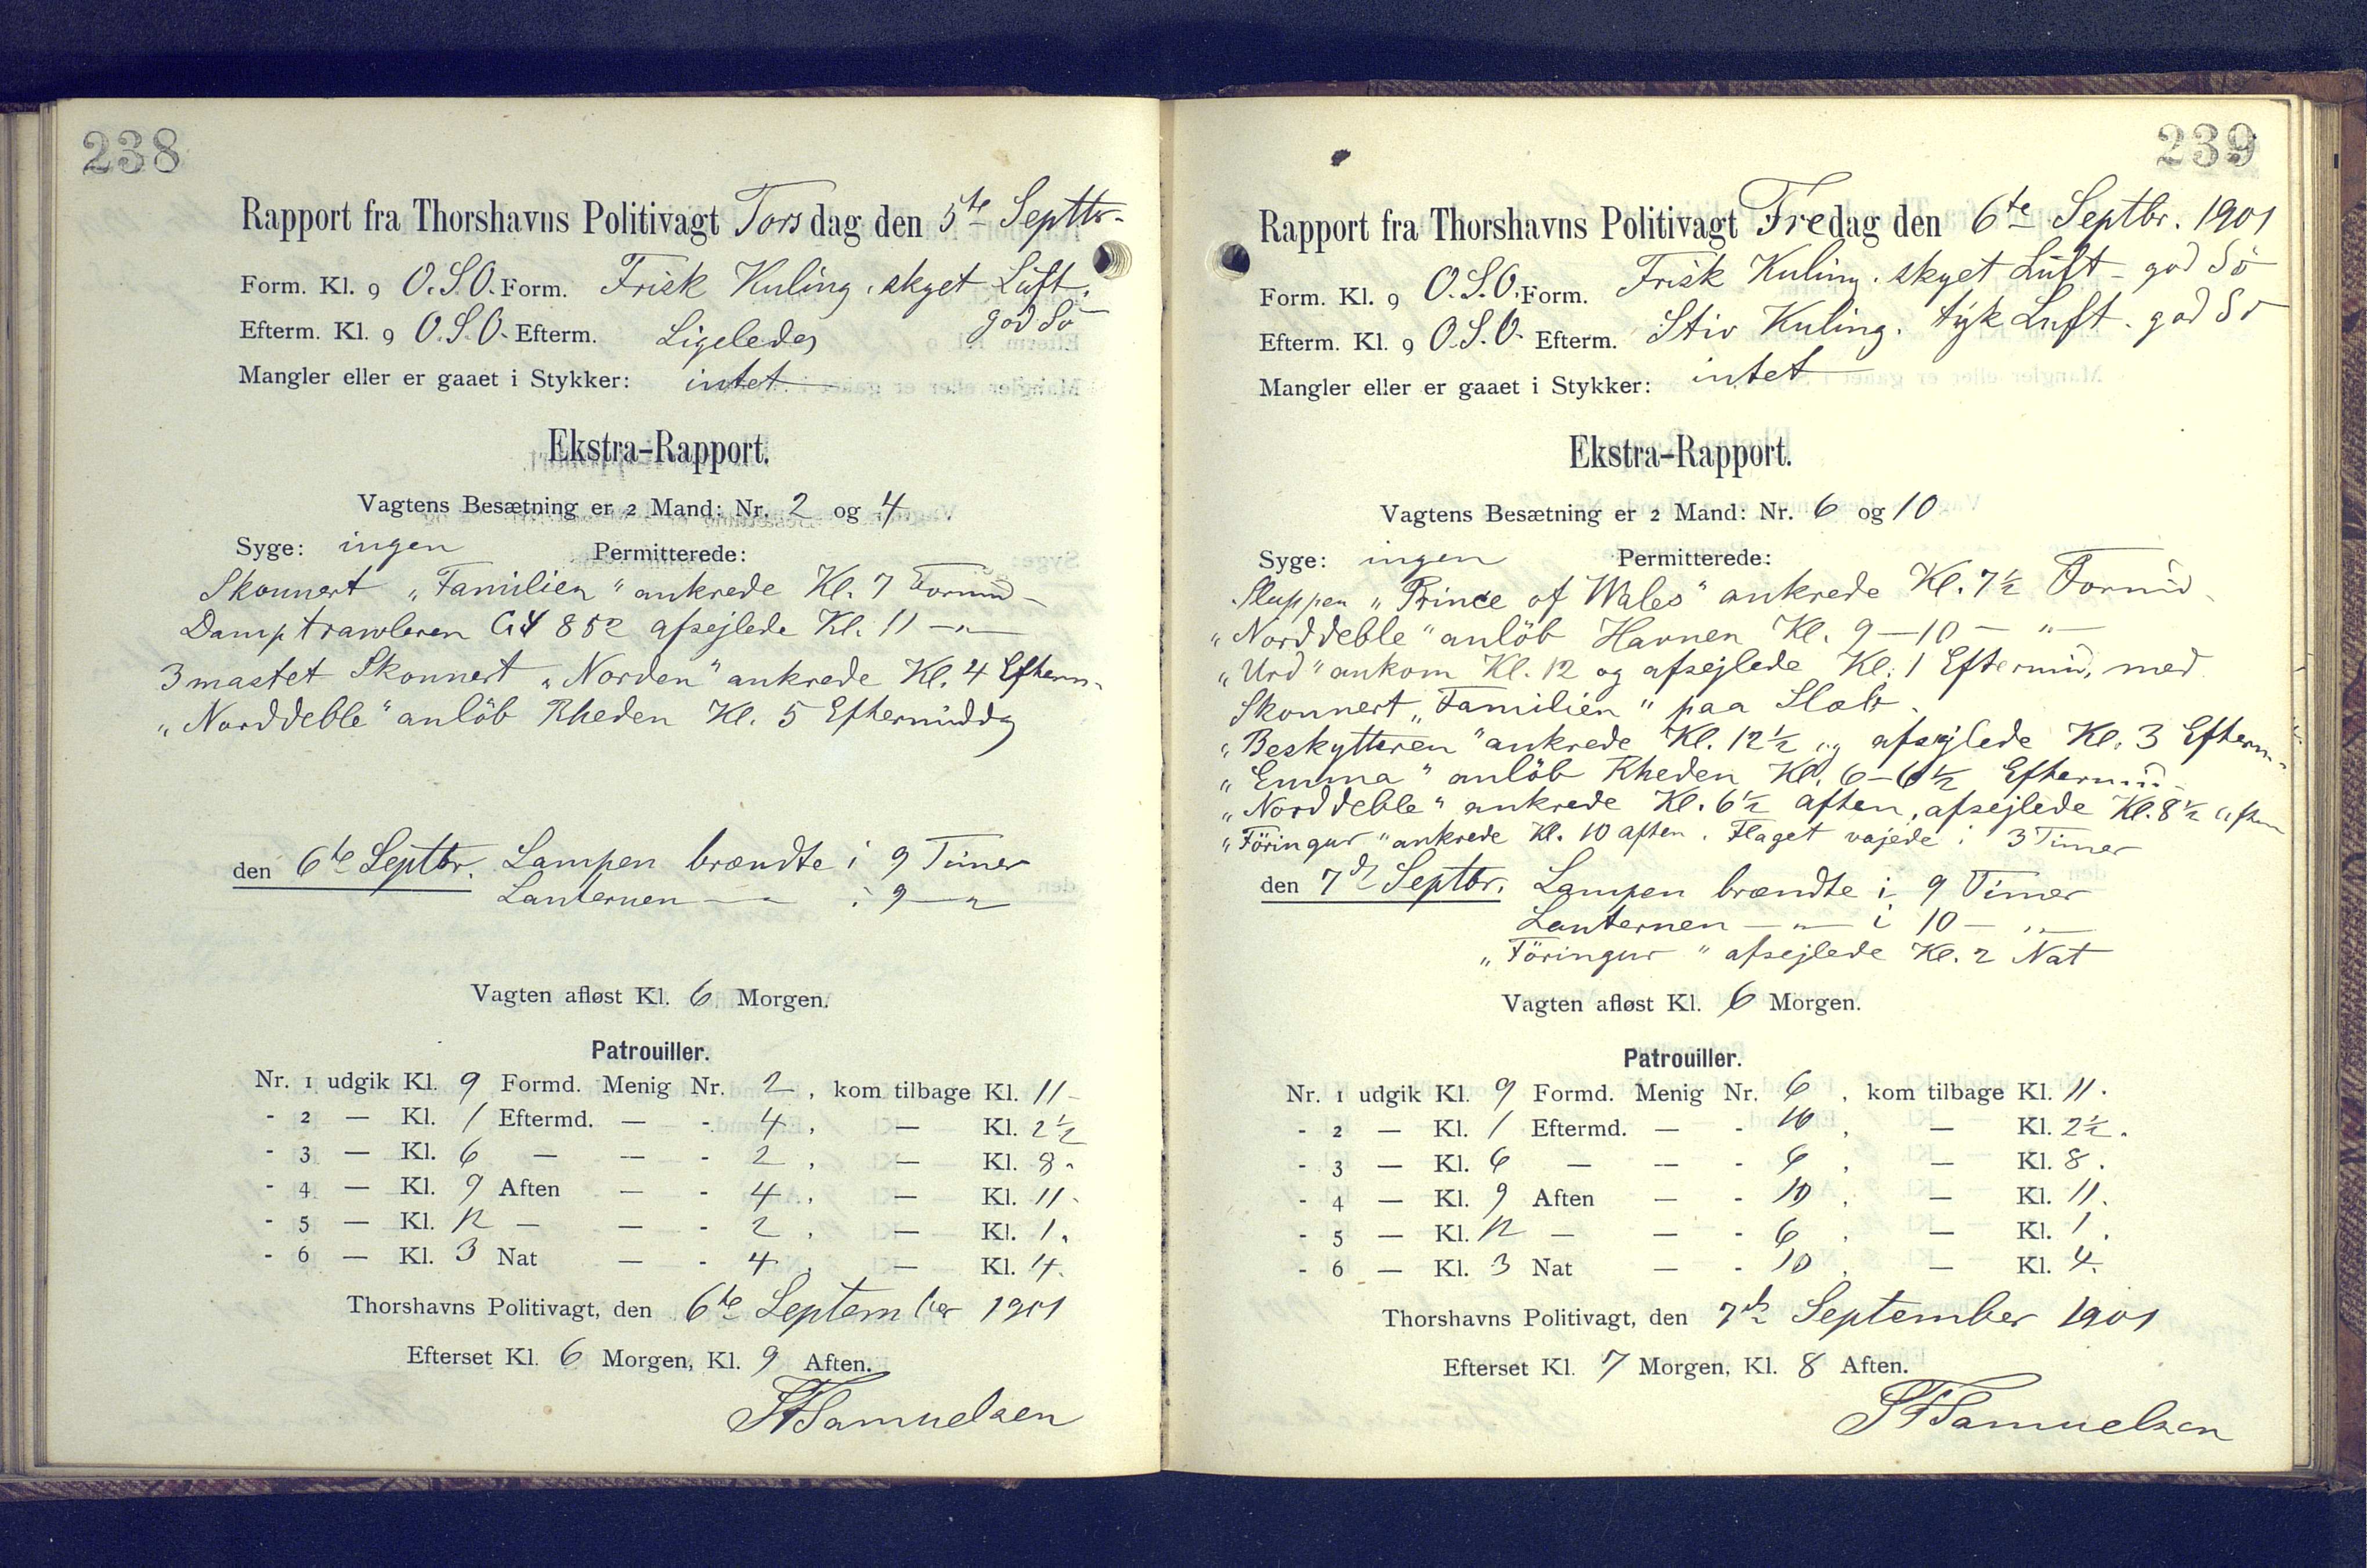 238
Rapport fra Thorshavns Politivagt Torsdag den 5te Septbr.
Form. Kl. 9 O.S.O. Form. Frisk Kuling. skyet Luft.
god Sö
Efterm. Kl. 9 O.S.O. Efterm. Ligeledes
Mangler eller er gaaet i Stykker: intet
Ekstra-Rapport.
Vagtens Besætning er 2 Mand: Nr. 2 og 4.
Syge: ingen Permitterede:
Skonnert „Familien“ ankrede Kl. 7 Formid
Damptrawleren GY 852 afsejlede Kl. 11 — „ —
3 mastet Skonnert „Norden“ ankrede Kl. 4 Efterm.
„Norddeble“ anlöb Rheden Kl. 5 Eftermiddg
den 6te Septbr. Lampen brændte i 9 Timer
Lanternen — „ — i 9 — „
Vagten afløst Kl. 6 Morgen.
Patrouiller.
Nr. 1 udgik Kl. 9 Formd. Menig Nr. 2, kom tilbage Kl. 11.
- 2 — Kl. 1 Eftermd. — - 4, — Kl. 2½
- 3 — Kl. 6 — — - 2, — Kl. 8.
- 4 — Kl. 9 Aften — - 4, — Kl. 11.
- 5 — Kl. 12 — — - 2, — Kl. 1.
- 6 — Kl. 3 Nat — - 4, — Kl. 4.
Thorshavns Politivagt, den 6te September 1901
Efterset Kl. 6 Morgen, Kl. 9 Aften.
SFSamuelsen
239
Rapport fra Thorshavns Politivagt Fredag den 6te Septbr. 1901
Form. Kl. 9 O.S.O. Form. Frisk Kuling. skyet Luft - god Sö
Efterm. Kl. 9 O.S.O. Efterm. Stiv Kuling. tyk Luft. god Sö
Mangler eller er gaaet i Stykker: intet
Ekstra-Rapport.
Vagtens Besætning er 2 Mand: Nr. 6 og 10
Syge: ingen Permitterede:
Sluppen „Prince of Wales“ ankrede Kl. 7½ Formid.
„Norddeble“ anlöb Havnen Kl. 9—10 — „ —
„Urd“ ankom Kl. 12 og afsejlede Kl. 1 Eftermid, med
Skonnert „Familien“ paa Slæb.
„Beskytteren“ ankrede Kl. 12½ og afsejlede Kl. 3 Efterm.
„Emma“ anlöb Rheden Kl. 6—6½ Eftermid
„Norddeble“ ankrede Kl. 6½ aften, afsejlede Kl. 8½ aften
„Föringur“ ankrede Kl. 10 aften. Flaget vajede i 3 Timer
den 7de Septbr. Lampen brændte i 9 Timer
Lanternen — „ — i 10 — „ —
„Föringur“ afsejlede Kl. 2 Nat
Vagten afløst Kl. 6 Morgen.
Patrouiller.
Nr. 1 udgik Kl. 9 Formd. Menig Nr. 6, kom tilbage Kl. 11.
- 2 — Kl. 1 Eftermd. — - 10, — Kl. 2½.
- 3 — Kl. 6 — — - 6, — Kl. 8.
- 4 — Kl. 9 Aften — - 10, — Kl. 11.
- 5 — Kl. 12 — — - 6, — Kl. 1.
- 6 — Kl. 3 Nat — - 10, — Kl. 4.
Thorshavns Politivagt, den 7de September 1901
Efterset Kl. 7 Morgen, Kl. 8 Aften.
SFSamuelsen